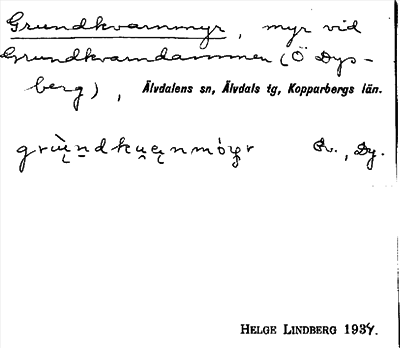 Grundkvarnmyr, myr vid
Grundkvarndammen (Ö Dys-
berg), Älvdalens sn, Älvdals tg, Kopparbergs län.
Äv., Dy.
HELGE LINDBERG 1937.